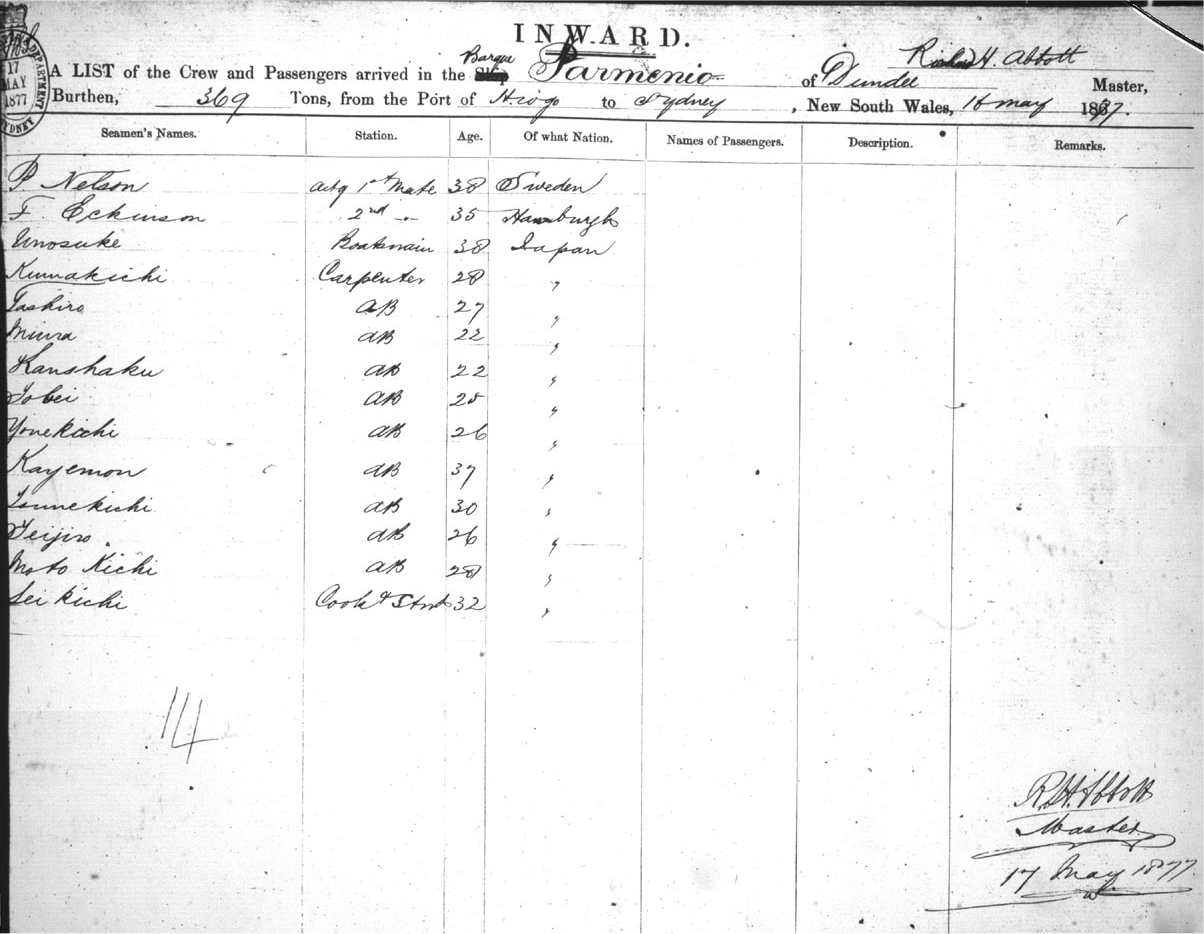 INWARD.
17
MAY
1877
SYDNEY
DEPARTMENT
A LIST of the Crew and Passengers arrived in the Ship Barque Parmenio of Dundee Richard H. Abbott Master,
Burthen, 369 Tons, from the Port of Hiogo to Sydney, New South Wales, 16 May 1877.
Seamen's Names. Station. Age. Of what Nation. Names of Passengers. Description. Remarks.
P Nelson actg 1st Mate 38 Sweden
F. Eckinson 2nd " 35 Hamburgh
Unosuke Boatswain 38 Japan
Kumakichi Carpenter 28 "
Tashiro AB 27 "
Miura AB 22 "
Kanshaku AB 22 "
Tobei AB 28 "
Yonekichi AB 26 "
Kayemon AB 37 "
Tsunekichi AB 30 "
Teijiro. AB 26 "
Moto Kichi AB 28 "
Sei kichi Cook & Stwd 32 "
14
R. H. Abbott
Master
17 May 1877